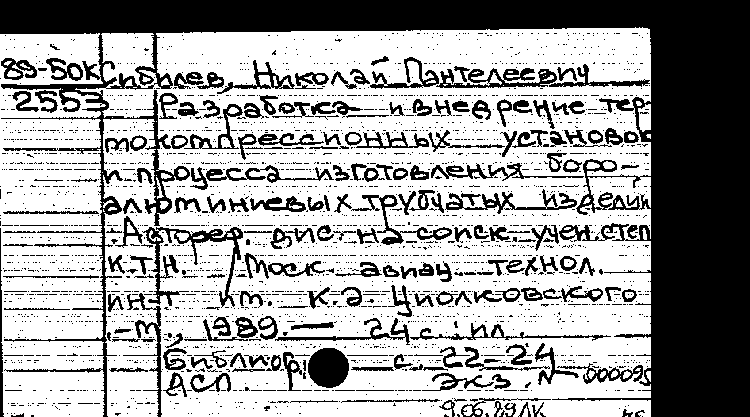 89-50к Сибилев, Николай Пантелеевич
2553 Разработка и внедрение тер-
мокомпрессионных установок
и процесса изготовления боро-
алюминиевых трубчатых изделий
.Автореф. дис. на соиск. учен. степ
к.т.н. / Моск. авиац. технол.
ин-т им. К.Э. Циолковского
.-М., 1989. — 24 с. : ил.
Библиогр. с. 22-24
АСП. Экз. № 000095
9.06.89 ЛК